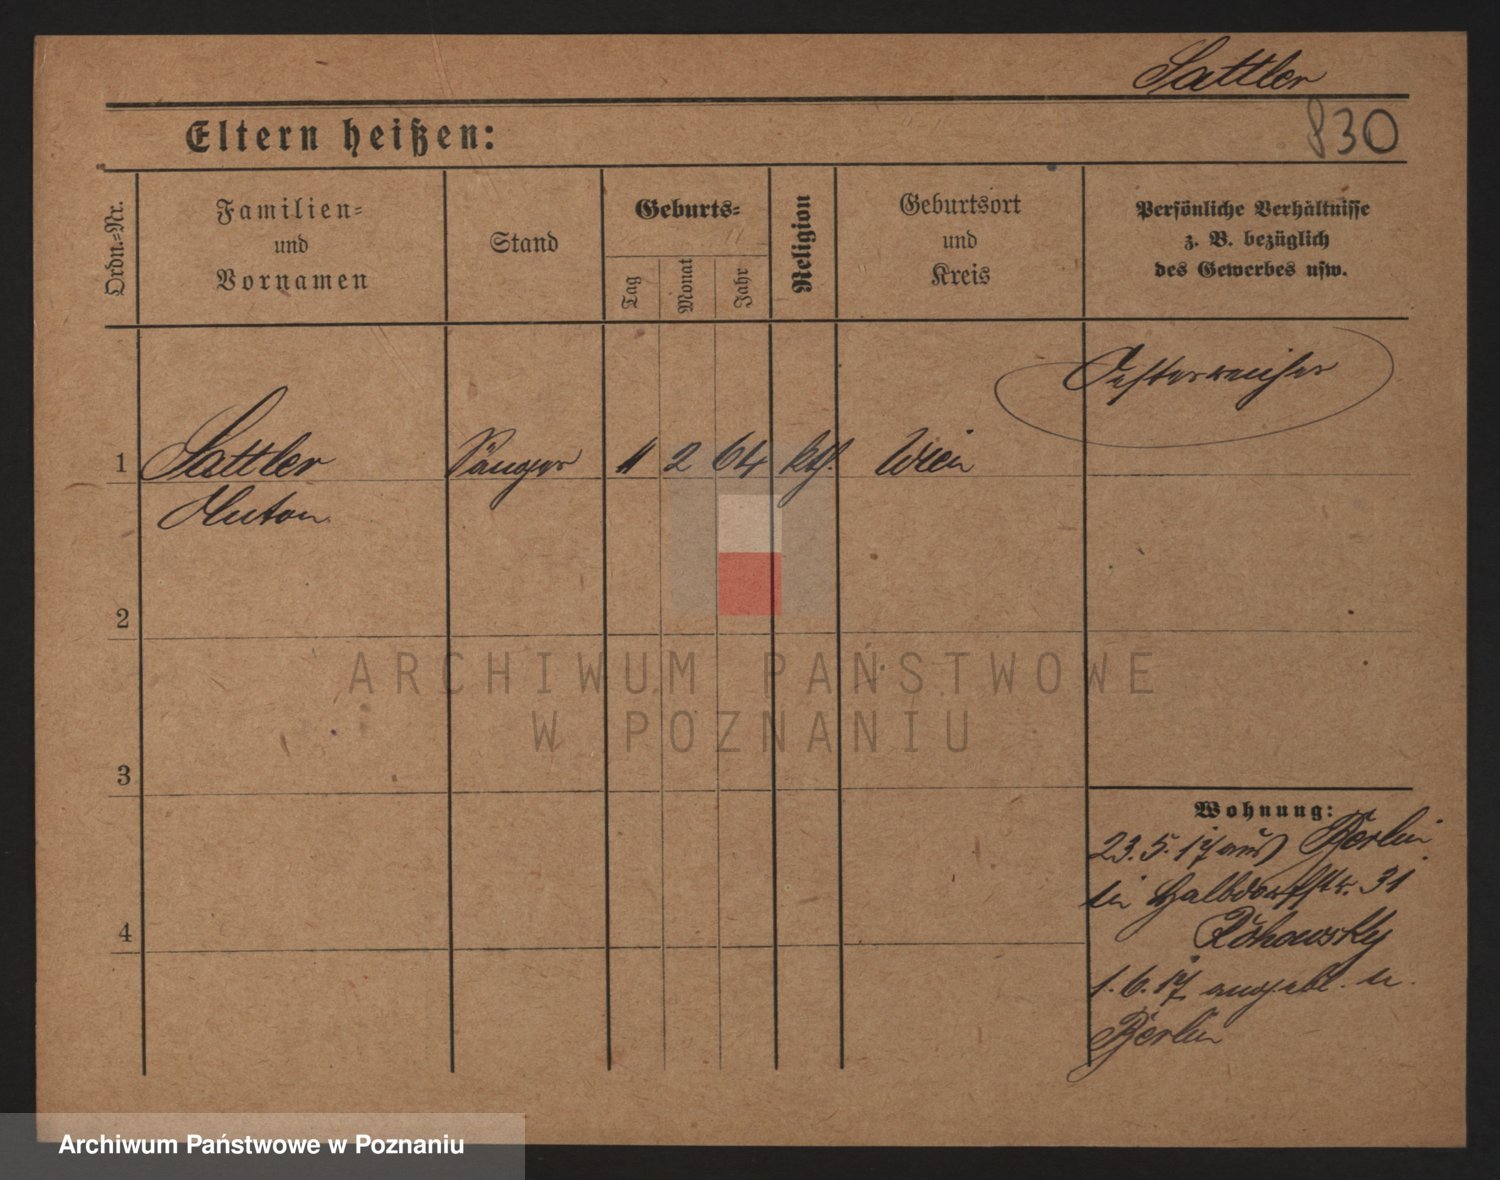 Sattler
Eltern heißen:
830
Ordn.-Nr.
Familien-
und
Vornamen
Stand
Geburts-
Tag
Monat
Jahr
Religion
Geburtsort
und
Kreis
Persönliche Verhältnisse
z. B. bezüglich
des Gewerbes usw.
Oesterreicher
1 Sattler Sänger 11 2 64 kth. Wien
Anton
2
3
4
Wohnung:
23.5.17 aus Berlin
in Halbdorffstr. 31
1.6.17 angebl. n.
Berlin
ARCHIWUM PAŃSTWOWE
W POZNANIU
Archiwum Państwowe w Poznaniu